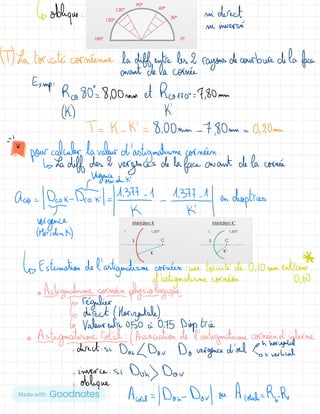 ↳ oblique.
ni direct
ni inversé
180°
150°
120°
90°
60°
30°
0°
(T) La toricité cornéenne la diff entre les 2 rayons de courbure de la face
avant de la cornée
Exmp: Rco 80° = 8,00 mm et Rco 170° = 7,80 mm
(K) K'
T = K - K' = 8.00 mm - 7,80 mm = 0,20 mm
pour calculer la valeur d'astigmatisme cornéen
↳ La diff des 2 vergences de la face avant de la cornée
vergence Méridien K'
aco = |Dco K - Dco K'| = |1.377 - 1 / K - 1.377 - 1 / K'| en dioptries
vergence
(Méridien K)
Méridien K
Méridien K'
1 1,377
1 1,377
S C
S C
K
K'
↳ Estimation de l'astigmatisme cornéen: une toricité de 0,10 mm entraine
d'astigmatisme cornéen 0,60
* Astigmatisme cornéen physiologique
↳ régulier
↳ direct (Horizontale)
↳ Valeur entre 0,50 à 0,75 Dioptrie
* Astigmatisme total: (Association de l'astigmatisme cornéen et interne
. direct: si Doh < Dov Do vergence d'oeil h horizontal
v vertical
. inverse: si Doh > Dov
. oblique
Atotal = |Doh - Dov| ou A total = Rh - Rv
Made with Goodnotes